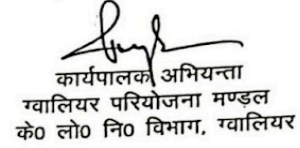 कार्यपालक अभियन्ता
ग्वालियर परियोजना मण्डल
के0 लो0 नि0 विभाग, ग्वालियर